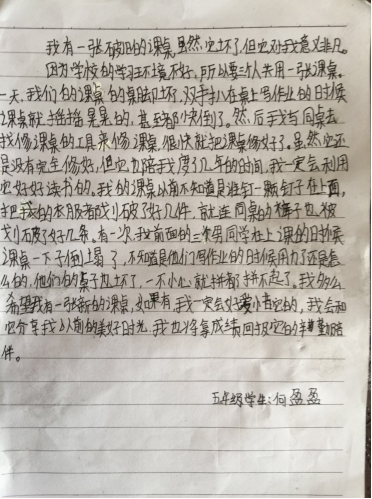 我有一张破旧的课桌虽然它坏了但它对我意义非凡。
因为学校的学习环境不好,所以要三个人共用一张课桌。
一天,我们的的课桌的桌腿坏,双手扒在桌上写作业的时候
课桌就摇摇晃晃的,甚至都快倒了。然后我与同桌去
找修课桌的工具来修课桌,很快就把课桌修好了。虽然它还
是没有完全修好,但它也陪我度了几年的时间,我一定会利用
它好好读书的。我的课桌以前不知道是谁钉一颗钉子在上面,
把我的衣服都划破了好几件,就连同桌的裤子也被
划破了好几条。有一次,我前面的三个男同学在上课的时候
课桌一下子倒塌了,不知道是他们写作业的时候用力了还是怎
么的,他们的桌子也坏了,一不小心就拼都拼不起了。我多么
希望我有一张新的课桌,如果有,我一定会好爱惜它的,我会和
它分享我以前的美好时光,我也将拿成绩回报它的辛勤陪
伴。
五年级学生:何盈盈